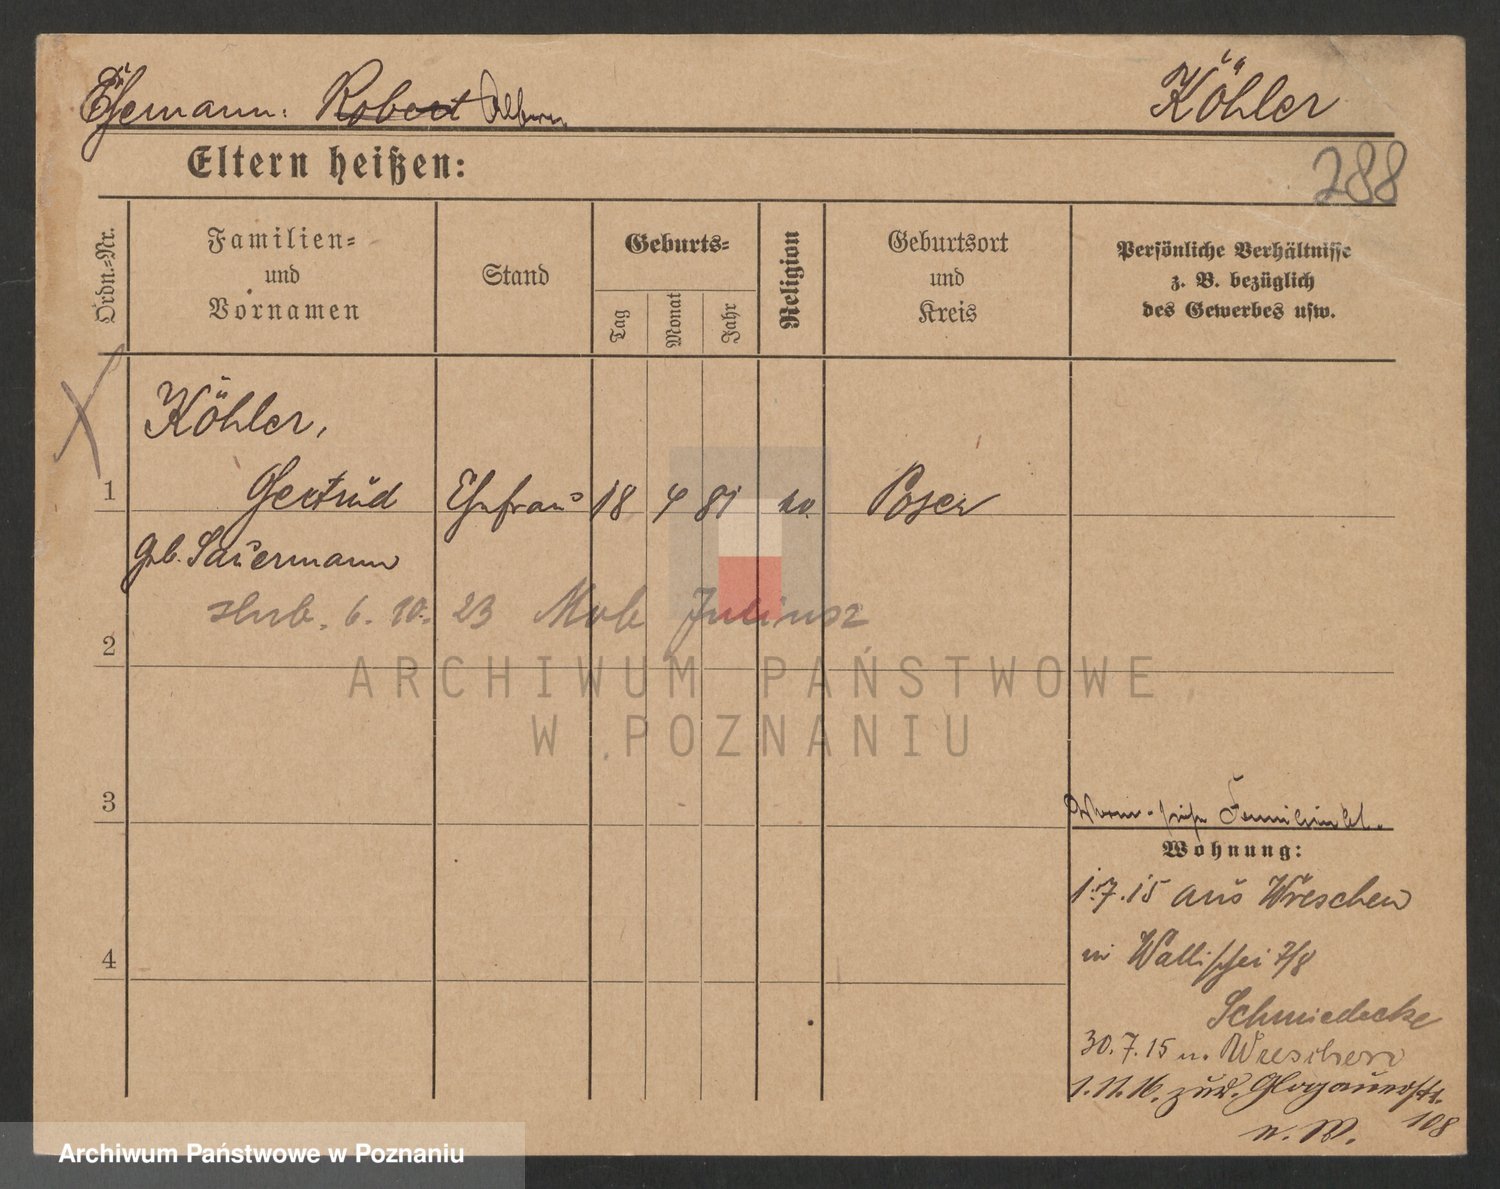 Ehemann: Robert Köhler
Eltern heißen:
288
Ordn.=Nr.
Familien=
und
Vornamen
Stand
Geburts=
Tag
Monat
Jahr
Religion
Geburtsort
und
Kreis
Persönliche Verhältnisse
z. B. bezüglich
des Gewerbes usw.
Köhler,
1 Gertrud Ehefrau 18 4 81 Posen
geb. Sauermann
6. 10. 23 Juliusz
2
ARCHIWUM PAŃSTWOWE
W POZNANIU
3
Wohnung:
1.7.15 aus Wreschen
in Wallischei 7/8
4
Schmiedecke
30.7.15 n. Wreschen
1.11.16. zur. Glogauerstr.
108
n. W.
Archiwum Państwowe w Poznaniu